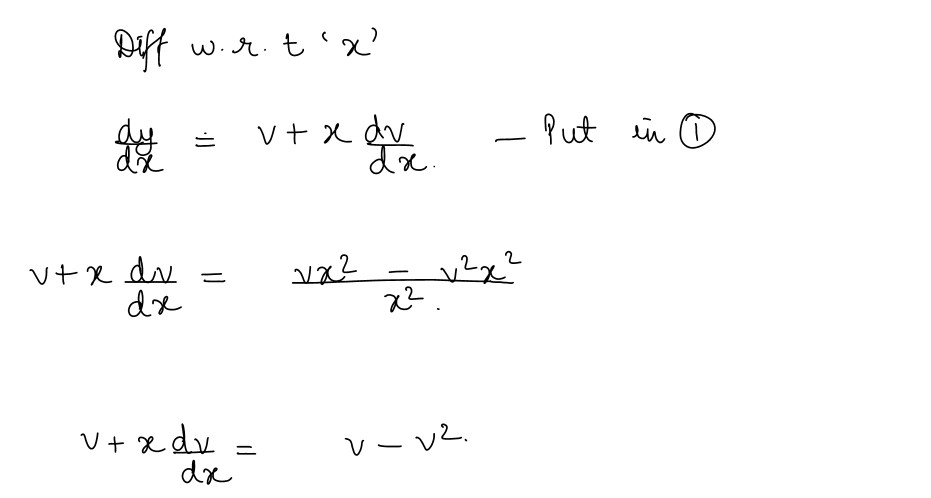 Diff w.r.t 'x'
dy/dx = v + x dv/dx. — Put in ①
v + x dv/dx = vx² - v²x² / x².
v + x dv/dx = v - v².